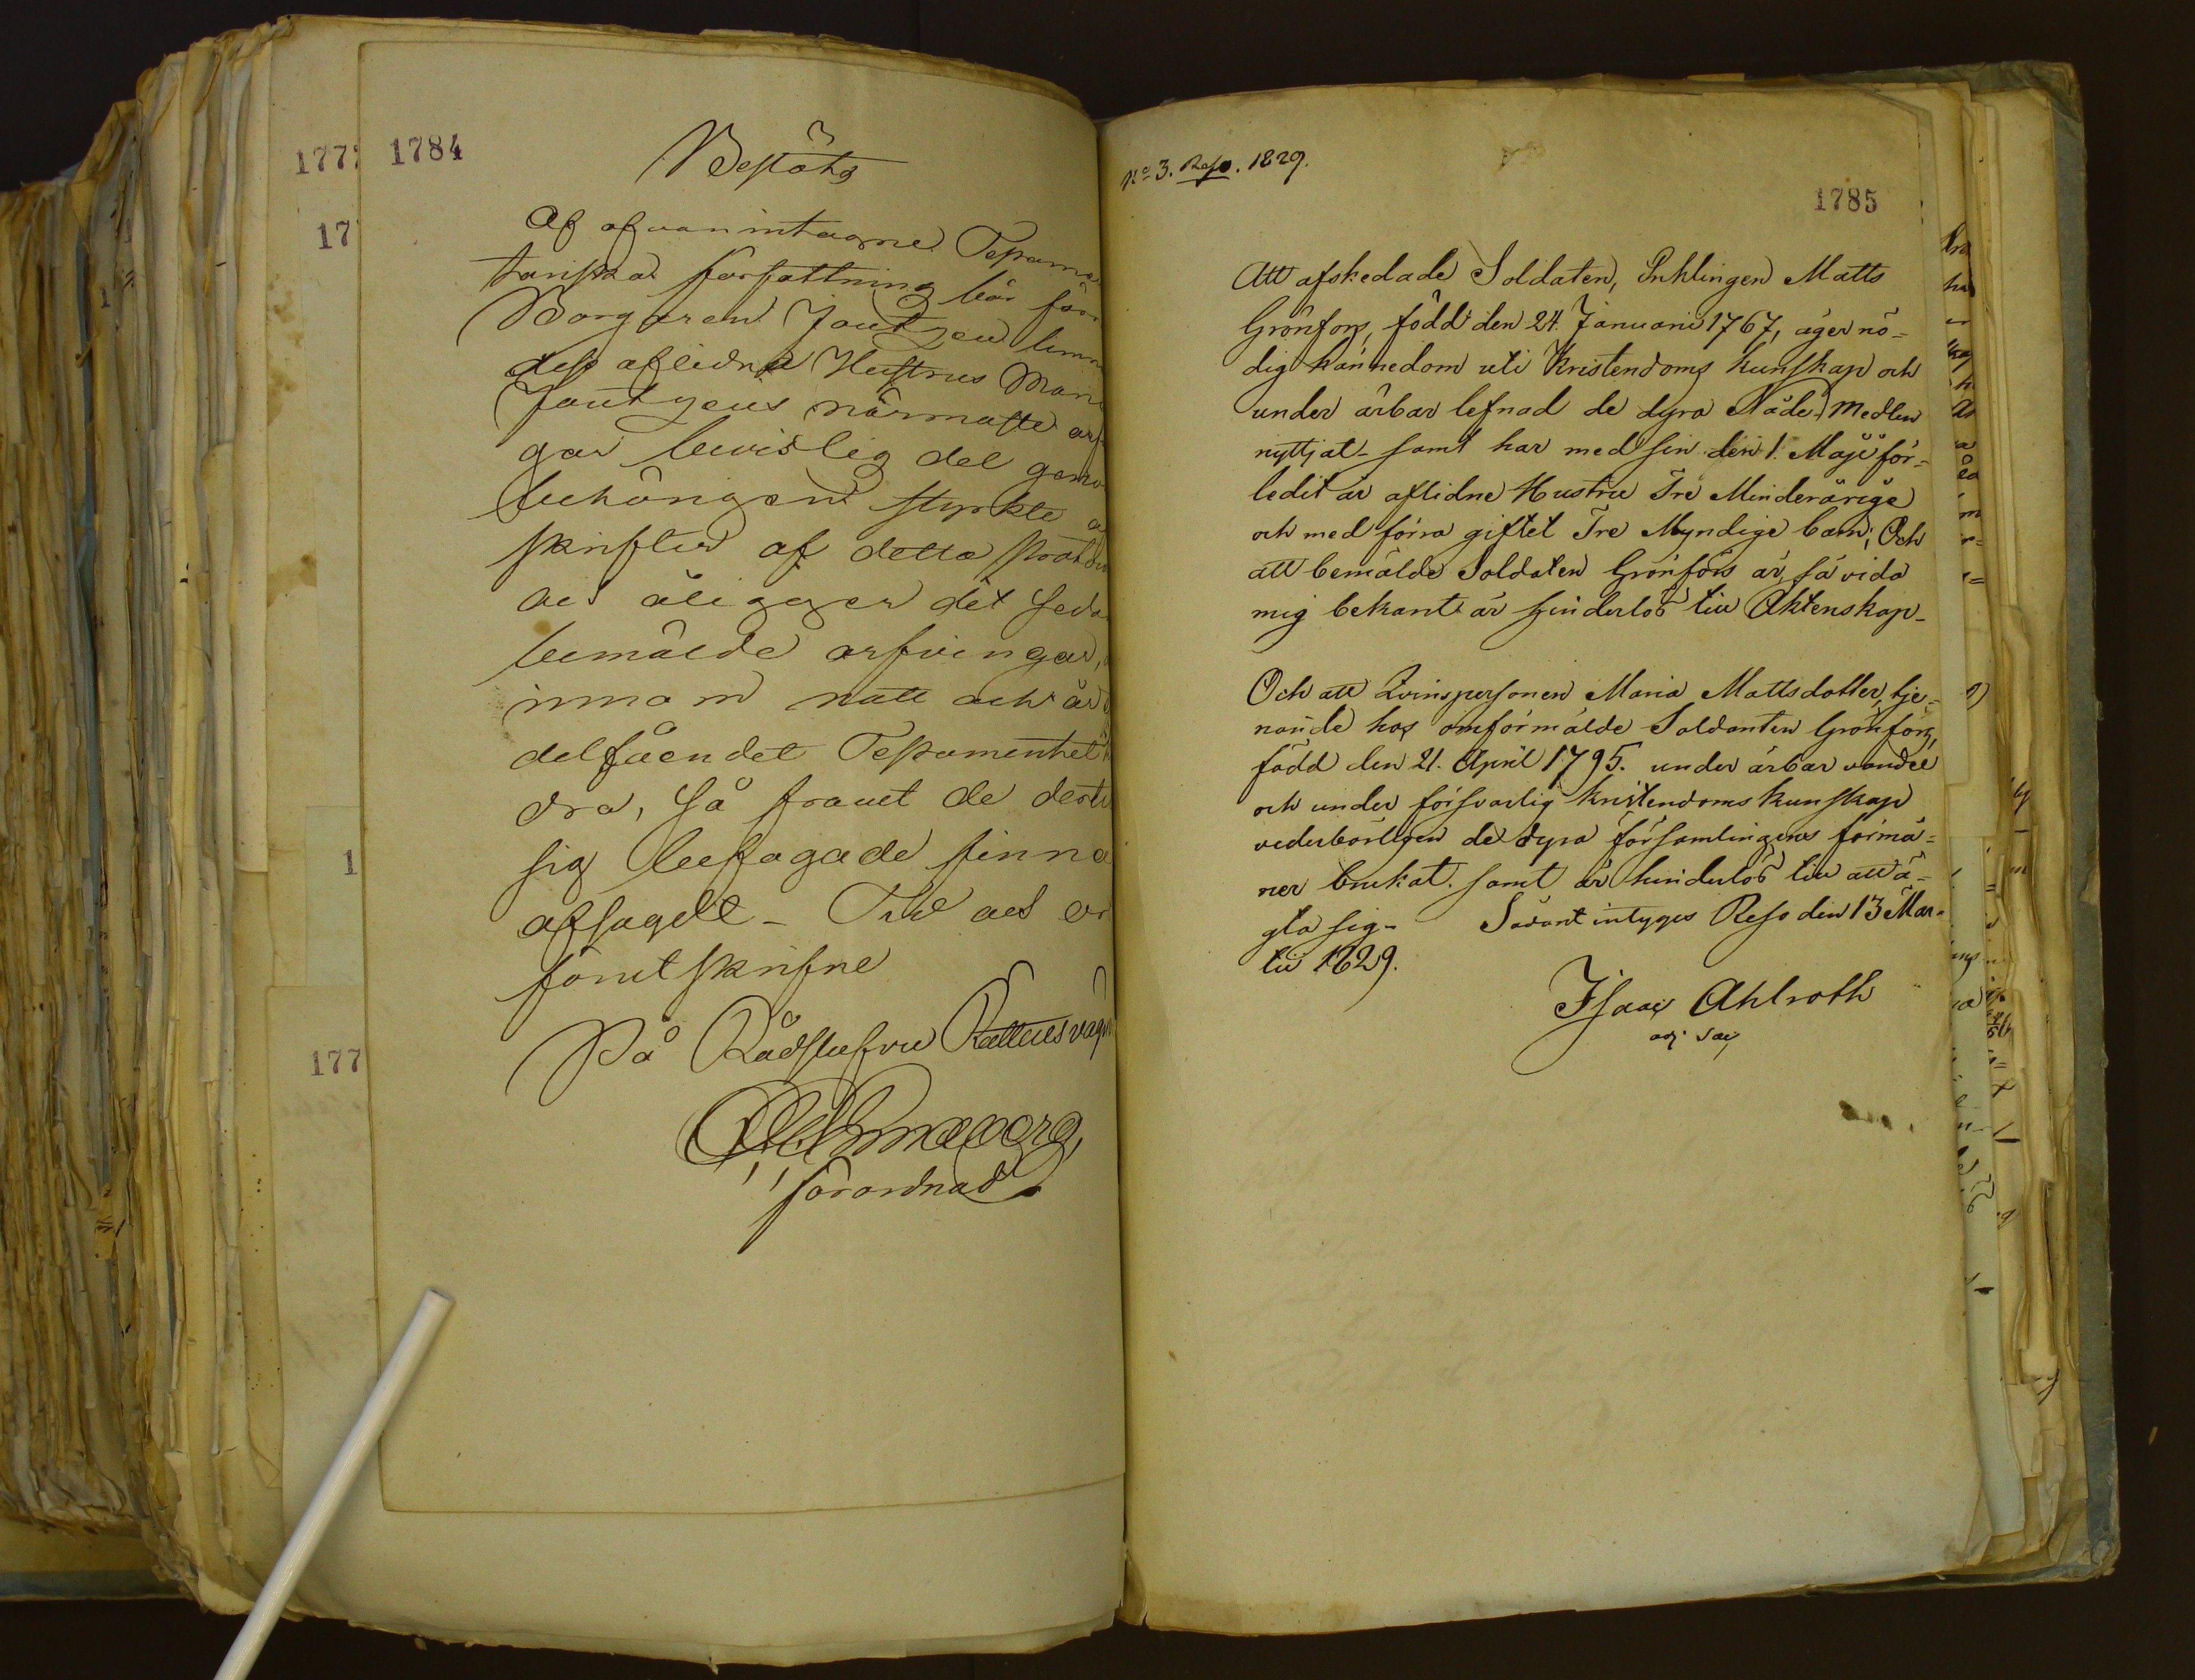 1777
1784
17
1
177
Beslöts
Af ofvanintagne Testamen
tariska författning bör för
Borgaren Jantzen
dess aflidna Hustrus
Jantzens närmaste arf
gar bevislig del
behörigen styrkte
skrifter af detta
åligger det
bemälde arfvingar,
innom natt och år
delfåendet Testamentet
dra, så framt de
sig befogade finna
afsagdt _ Tid och
förutskrifne
På Rådstufvu Rättens vägn
förordnad
No 3. Reso. 1829.
1785
Att afskedade Soldaten, Enklingen Matts
Grönfors, född den 24. Januarii 1767, äger nö=
dig kännedom uti Kristendoms kunskap och
under ärbar lefnad de dyra Nåde Medlen
nyttjat _ samt har med sin den 1. Maji för=
ledit år aflidne Hustru Tre Minderårige
och med förra giftet Tre Myndige barn; Och
att bemälde Soldaten Grönfors är, så vida
mig bekant är hinderlös till Äktenskap _
Och att Qvinspersonen Maria Mattsdotter, tje=
nande hos omförmälde Soldaten Grönfors,
född den 21. April 1795. under ärbar vandel
och under försvarlig kristendoms kunskap
vederbörligen de dyra församlingens förmå=
ner brukat. samt är hinderlös till att ä=
gta sig _ Sådant intyges Reso den 13 Mar=
tii 1829.
Isaac Ahlroth
adj. sac.